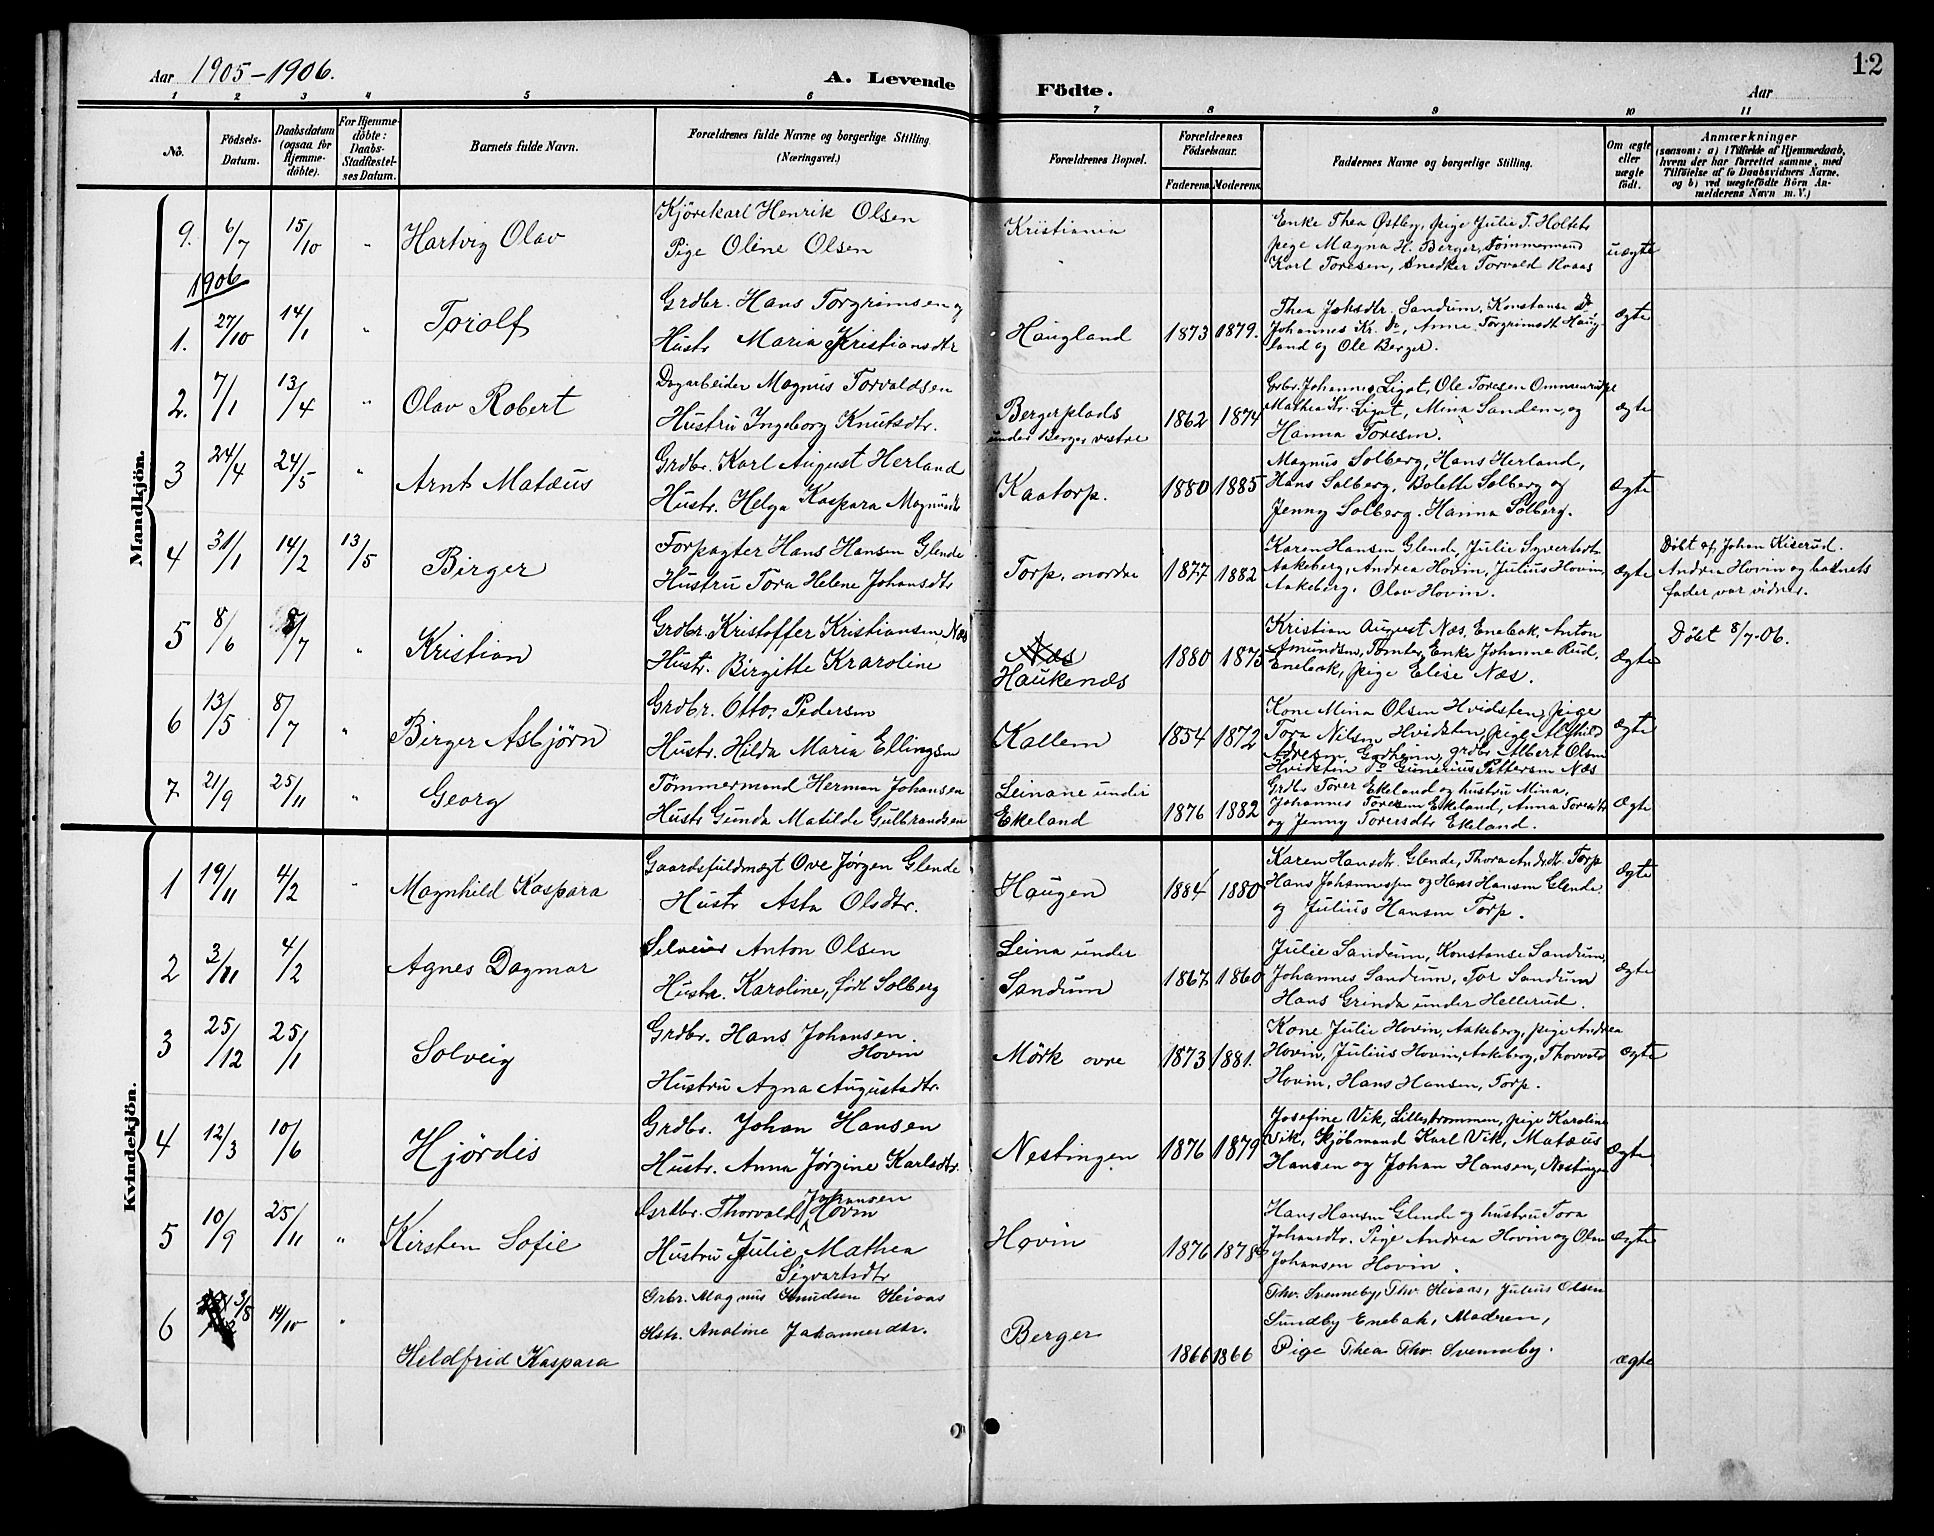 Aar 1905-1906.
A. Levende Födte.
Aar
12
1 2 3 4 5 6 7 8 9 10 11
No.
Födsels-Datum.
Daabsdatum (ogsaa for Hjemme-döbte).
For Hjemme-döbte: Daabs-Stadfæstel-ses Datum.
Barnets fulde Navn.
Forældrenes fulde Navne og borgerlige Stilling. (Næringsvei.)
Forældrenes Bopæl.
Forældrenes Födselsaar.
Faderens. Moderens.
Faddernes Navne og borgerlige Stilling.
Om ægte eller uægte födt.
Anmærkninger (saasom: a) i Tilfælde af Hjemmedaab, hvem der har forrettet samme, med Tilföielse af to Daabsvidners Navne, og b) ved uægtefödte Börn An-melderens Navn m. V.)
Mandkjön.
9. 6/7 15/10 " Hartvig Olav
Kjörekarl Henrik Olsen
Pige Oline Olsen
Kristiania
Enke Thea Østby, pige Julie T. Holteb
pige Magna H. Berger, Tömmermand
Karl Toresen, Snedker Torvald Roaas
uægte
1906
1. 27/10 14/1 " Toralf
Grdbr. Hans Torgrimsen og
Hustr Maria Kristiansdtr
Haugland 1873 1879.
Thea Johsdtr. Sandum, Konstanse do
Johannes Kr. do, Anne Torgrimsdt Haug-
land og Ole Berger.
Ægte
2. 7/1 13/4 " Olav Robert
Dagarbeider Magnus Torvaldsen
Hustru Ingeborg Knutsdtr.
Bergerplads
under Berger, vestre
1862 1874
Grbr. Johannes Ligot, Ole Toresen
Mathea Kr. Ligot, Mina Sandem, og
Hanna Toresen.
ægte
3 24/4 24/5 " Arnt Matæus
Grdbr. Karl August Herland
Hustr. Helga Kaspara Magnusdt
Kaatorp. 1880 1885
Magnus Solberg, Hans Herland,
Hans Solberg, Bolette Solberg og
Jenny Solberg. Hanna Solberg.
Ægte
4 31/1 14/2 13/5 Birger
Forpagter Hans Hansen Glende
Hustru Tora Helene Johansdtr
Torp, nordre 1877 1882
Karen Hansen Glende, Julie Syvertsdt.
Aakeberg, Andrea Hovin, Julius Hovin,
Aakeberg. Olav Hovin.
ægte
Döbt af Johan Kiserud.
Andrea Hovin og barnets
fader var vidner.
5 8/6 8/7 " Kristian
Grdbr. Kristoffer Kristiansen Næs
Hustr. Birgitte Kraroline
Næs
Haukenæs
1880 1875
Kristian August Næs, Enebak, Anton
Amundsen, Tomter, Enke Johanne Rud,
Enebak, pige Elise Næs.
Ægte
Döbt 8/7-06.
6 13/5 8/7 " Birger Asbjörn
Grdbr. Otto Pedersen
Hustr. Hilda Maria Ellingsen
Kallem 1854 1872
Kone Mina Olsen Hvidsten, pige
Tora Nilsen Hvidsten, pige
Godheim, grdbr. Albert Olsen
Hvidsten do Gunerius Pettersen Næs
ægte
7. 21/9 25/11 " Georg
Tömmermand Herman Johansen
Hustr Gunda Matilde Gulbrandsen
Leinane under
Ekeland
1876 1882
Grdbr Torer Ekeland og hustru Mina,
Johannes Toresen Ekeland, Anna Toresdtr
og Jenny Torersdtr Ekeland.
Ægte
Kvindekjön.
1 19/11 4/2 " Magnhild Kaspara
Gaardsfuldmægt Ove Jörgen Glende
Hustr Asta Olsdtr.
Haugen 1884 1880
Karen Hansdtr. Glende, Thora Andrdtr. Torp
Hans Johannesen og Hans Hansen Glende,
og Julius Hansen Torp.
Ægte
2 3/11 4/2 Agnes Dagmar
Selveier Anton Olsen
Hustr. Karoline, född Solberg
Leina under
Sandum
1867 1860
Julie Sandum, Konstanse Sandrum,
Johannes Sandrum, Tor Sandrum
Hans Grinda under Hellerud.
Ægte
3 25/12 25/1 Solveig
Grdbr. Hans Johansen.
Hovin
Hustru Agna Augustadtr.
Mörk ovre 1873 1881.
Kone Julie Hovin, Aakeberg, pige Andrea
Hovin, Julius Hovin, Aakeberg, Thorvald
Hovin, Hans Hansen, Torp.
Ægte
4 12/3 10/6 Hjördis
Grdbr. Johan Hansen
Hustr. Anna Jörgine Karlsdtr.
Nestingen 1876 1879
Josefine Vik, Lillestrommen, pige Karoline
Vik, Kjöbmand Karl Vik, Matæus
Hansen og Johan Hansen, Nestingen
Ægte
5 10/9 25/11 " Kirsten Sofie
Grdbr. Thorvald Johansen Hovin
Hustru Julie Mathea
Sigvartsdtr
Hovin 1876 1878
Hans Hansen Glende og hustru Tora
Johansdtr. Pige Andrea Hovin og Olav
Johansen Hovin.
Ægte
6 3/8 14/10 " Hildfrid Kaspara
Grbr. Magnus Knudsen Heiaas
Hstr. Analine Johannesdtr.
Berger 1866 1866
Thv. Svenneby, Thv. Heiaas, Julius Olsen
Sundby Enebak, Moderen,
Pige Thea Thv. Svenneby.
ægte